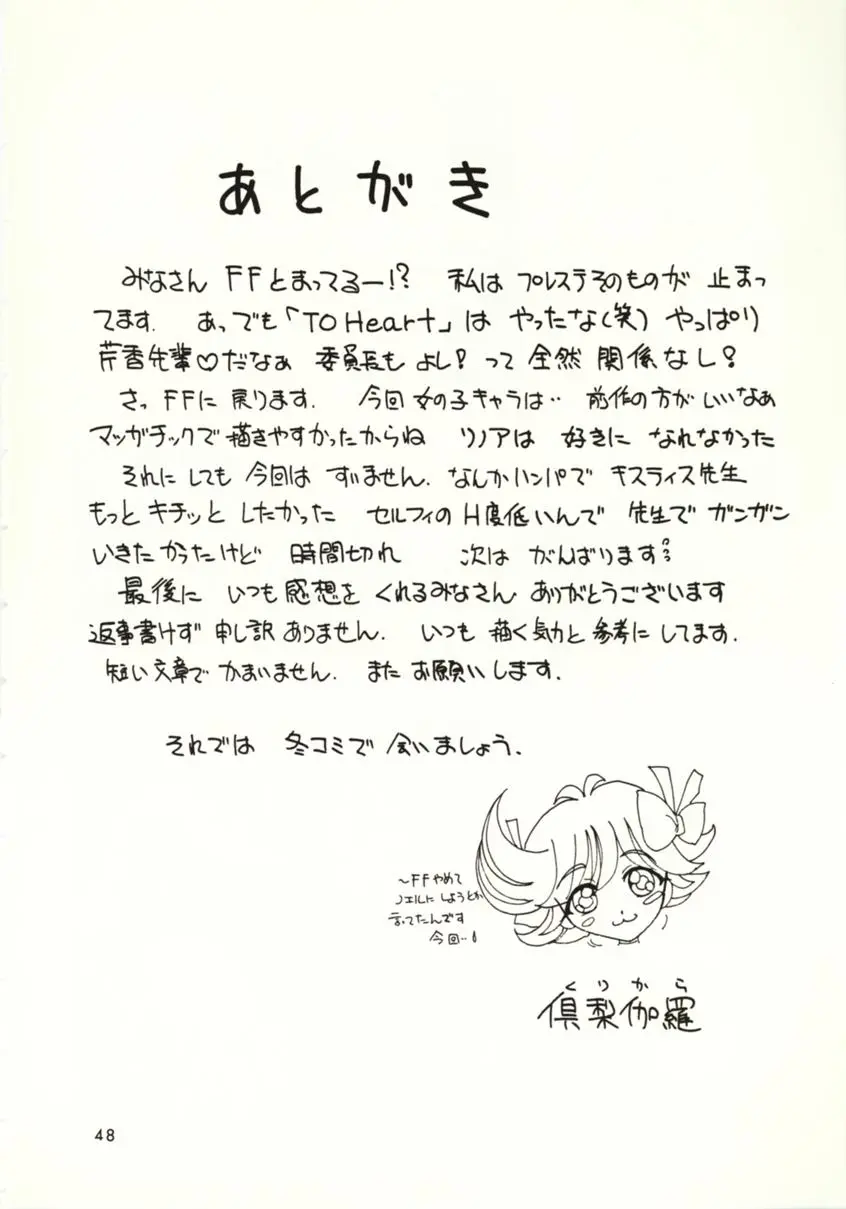 あとがき
みなさん FFとまってるー!? 私は プレステそのものが 止まっ
てます. あっでも「TO Heart」は やったな(笑) やっぱり
芹香先輩♡だなぁ 委員長も よし! って 全然 関係なし!
さっ FFに 戻ります. 今回 女の子キャラは‥ 前作の方が いいなぁ
マンガチックで描きやすかったからね リノアは 好きに なれなかった
それにしても 今回は すいません. なんかハンパで キスティス先生
もっと キチッと したかった セルフィのH度低いんで 先生で ガンガン
いきたかったけど 時間切れ 次は がんばります
最後に いつも 感想を くれるみなさん ありがとうございます
返事書けず 申し訳ありません. いつも 描く気力と 参考に してます.
短い文章で かまいません. また お願いします.
それでは 冬コミで 会いましょう.
～FFやめて
ノエルに しようとか
言ってたんです
今回‥
くりから
倶梨伽羅
48